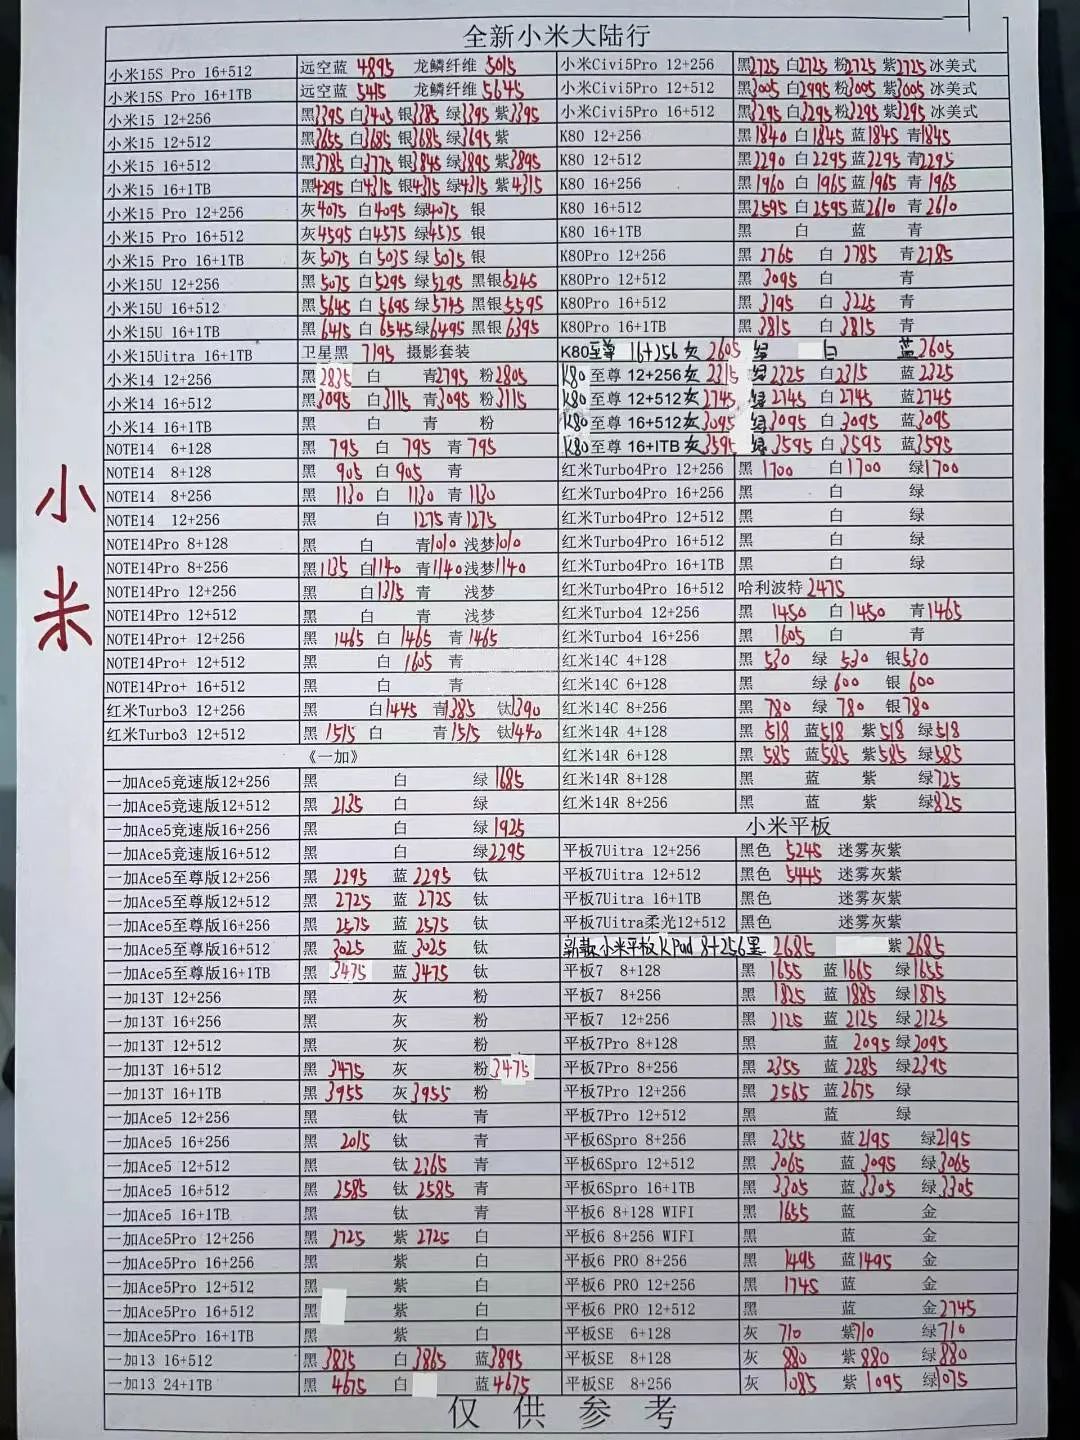 全新小米大陆行
小米
小米15S Pro 16+512 远空蓝 4895 龙鳞纤维 5015
小米15S Pro 16+1TB 远空蓝 5415 龙鳞纤维 5645
小米15 12+256 黑3395 白3405 银3385 绿3395 紫3395
小米15 12+512 黑3655 白3685 银3685 绿3695 紫
小米15 16+512 黑3785 白3775 银3845 绿3895 紫3895
小米15 16+1TB 黑4295 白4315 银4315 绿4315 紫4315
小米15 Pro 12+256 灰4075 白4095 绿4075 银
小米15 Pro 16+512 灰4595 白4575 绿4575 银
小米15 Pro 16+1TB 灰5075 白5035 绿5035 银
小米15U 12+256 黑5075 白5295 绿5295 黑银5245
小米15U 16+512 黑5645 白5695 绿5745 黑银5595
小米15U 16+1TB 黑6415 白6545 绿6495 黑银6395
小米15Uitra 16+1TB 卫星黑 7195 摄影套装
小米14 12+256 黑2835 白 青2795 粉2805
小米14 16+512 黑3095 白3115 青3095 粉3115
小米14 16+1TB 黑 白 青 粉
NOTE14 6+128 黑 795 白 795 青 795
NOTE14 8+128 黑 905 白 905 青
NOTE14 8+256 黑 1130 白 1130 青 1130
NOTE14 12+256 黑 白 1275 青1275
NOTE14Pro 8+128 黑 白 青1010 浅梦1010
NOTE14Pro 8+256 黑1135 白1140 青1140 浅梦1140
NOTE14Pro 12+256 黑 白1315 青 浅梦
NOTE14Pro 12+512 黑 白 青 浅梦
NOTE14Pro+ 12+256 黑 1465 白 1465 青 1465
NOTE14Pro+ 12+512 黑 白 1605 青
NOTE14Pro+ 16+512 黑 白 青
红米Turbo3 12+256 黑 白1445 青1385 钛1390
红米Turbo3 12+512 黑 1515 白 青1515 钛1440
《一加》
一加Ace5竞速版12+256 黑 白 绿 1685
一加Ace5竞速版12+512 黑 2135 白 绿
一加Ace5竞速版16+256 黑 白 绿1925
一加Ace5竞速版16+512 黑 白 绿2295
一加Ace5至尊版12+256 黑 2295 蓝 2295 钛
一加Ace5至尊版12+512 黑 2725 蓝 2725 钛
一加Ace5至尊版16+256 黑 2575 蓝 2575 钛
一加Ace5至尊版16+512 黑 3025 蓝 3025 钛
一加Ace5至尊版16+1TB 黑 3475 蓝 3475 钛
一加13T 12+256 黑 灰 粉
一加13T 16+256 黑 灰 粉
一加13T 12+512 黑 灰 粉
一加13T 16+512 黑 3475 灰 粉3475
一加13T 16+1TB 黑 3955 灰 3955 粉
一加Ace5 12+256 黑 钛 青
一加Ace5 16+256 黑 2015 钛 青
一加Ace5 12+512 黑 钛 2365 青
一加Ace5 16+512 黑 2585 钛 2585 青
一加Ace5 16+1TB 黑 钛 青
一加Ace5Pro 12+256 黑 2725 紫 2725 白
一加Ace5Pro 16+256 黑 紫 白
一加Ace5Pro 12+512 黑 紫 白
一加Ace5Pro 16+512 黑 紫 白
一加Ace5Pro 16+1TB 黑 紫 白
一加13 16+512 黑3835 白 3865 蓝3895
一加13 24+1TB 黑 4675 白 蓝4675
小米Civi5Pro 12+256 黑2725 白2725 粉2725 紫2725 冰美式
小米Civi5Pro 12+512 黑3005 白2995 粉3005 紫3005 冰美式
小米Civi5Pro 16+512 黑3295 白3295 粉3295 紫3295 冰美式
K80 12+256 黑1840 白 1845 蓝1845 青1845
K80 12+512 黑2290 白 2295 蓝2295 青2295
K80 16+256 黑1960 白 1965 蓝1965 青 1965
K80 16+512 黑2595 白 2595 蓝2610 青 2610
K80 16+1TB 黑 白 蓝 青
K80Pro 12+256 黑 2765 白 2785 青2785
K80Pro 12+512 黑 3095 白 青
K80Pro 16+512 黑 3195 白 3225 青
K80Pro 16+1TB 黑 3815 白 3815 青
K80至尊 16+256 灰 2605 绿 白 蓝2605
K80至尊 12+256灰 2315 绿2325 白2315 蓝 2325
K80至尊 12+512灰2745 绿2745 白2745 蓝2745
K80至尊 16+512灰3095 绿3095 白3095 蓝3095
K80至尊 16+1TB 灰3595 绿3595 白3595 蓝3595
红米Turbo4Pro 12+256 黑 1700 白1700 绿1700
红米Turbo4Pro 16+256 黑 白 绿
红米Turbo4Pro 12+512 黑 白 绿
红米Turbo4Pro 16+512 黑 白 绿
红米Turbo4Pro 16+1TB 黑 白 绿
红米Turbo4Pro 16+512 哈利波特 2475
红米Turbo4 12+256 黑 1450 白 1450 青1465
红米Turbo4 16+256 黑 1605 白 青
红米14C 4+128 黑 530 绿 530 银530
红米14C 6+128 黑 绿600 银 600
红米14C 8+256 黑 780 绿 780 银780
红米14R 4+128 黑 518 蓝518 紫518 绿518
红米14R 6+128 黑 585 蓝585 紫585 绿585
红米14R 8+128 黑 蓝 紫 绿725
红米14R 8+256 黑 蓝 紫 绿825
小米平板
平板7Uitra 12+256 黑色 5245 迷雾灰紫
平板7Uitra 12+512 黑色 5445 迷雾灰紫
平板7Uitra 16+1TB 黑色 迷雾灰紫
平板7Uitra柔光12+512 黑色 迷雾灰紫
新款小米平板K Pad 8+256黑 2685 紫 2685
平板7 8+128 黑 1655 蓝1665 绿1655
平板7 8+256 黑 1825 蓝 1885 绿1875
平板7 12+256 黑 2125 蓝 2125 绿2125
平板7Pro 8+128 黑 蓝 2095 绿2095
平板7Pro 8+256 黑 2355 蓝 2285 绿2395
平板7Pro 12+256 黑 2565 蓝2675 绿
平板7Pro 12+512 黑 蓝 绿
平板6Spro 8+256 黑 2355 蓝2195 绿2195
平板6Spro 12+512 黑 3065 蓝3095 绿3065
平板6Spro 16+1TB 黑 3305 蓝3305 绿3305
平板6 8+128 WIFI 黑 1655 蓝 金
平板6 8+256 WIFI 黑 蓝 金
平板6 PRO 8+256 黑 1495 蓝1495 金
平板6 PRO 12+256 黑 1745 蓝 金
平板6 PRO 12+512 黑 蓝 金2745
平板SE 6+128 灰 710 紫710 绿710
平板SE 8+128 灰 880 紫880 绿880
平板SE 8+256 灰 1085 紫1095 绿1075
仅供参考